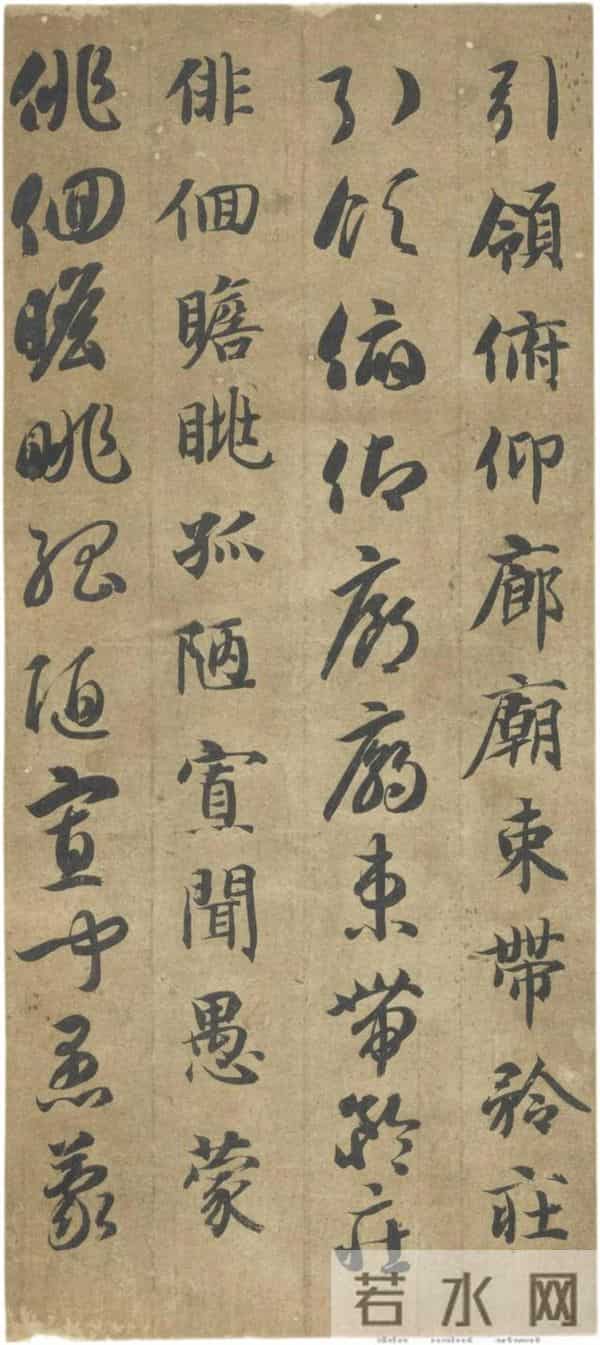 引領俯仰廊廟束帶矜莊
引領俯仰廊廟束帶矜莊
俳佪瞻眺孤陋寡聞愚蒙
俳佪瞻眺孤陋寡聞愚蒙
若水网